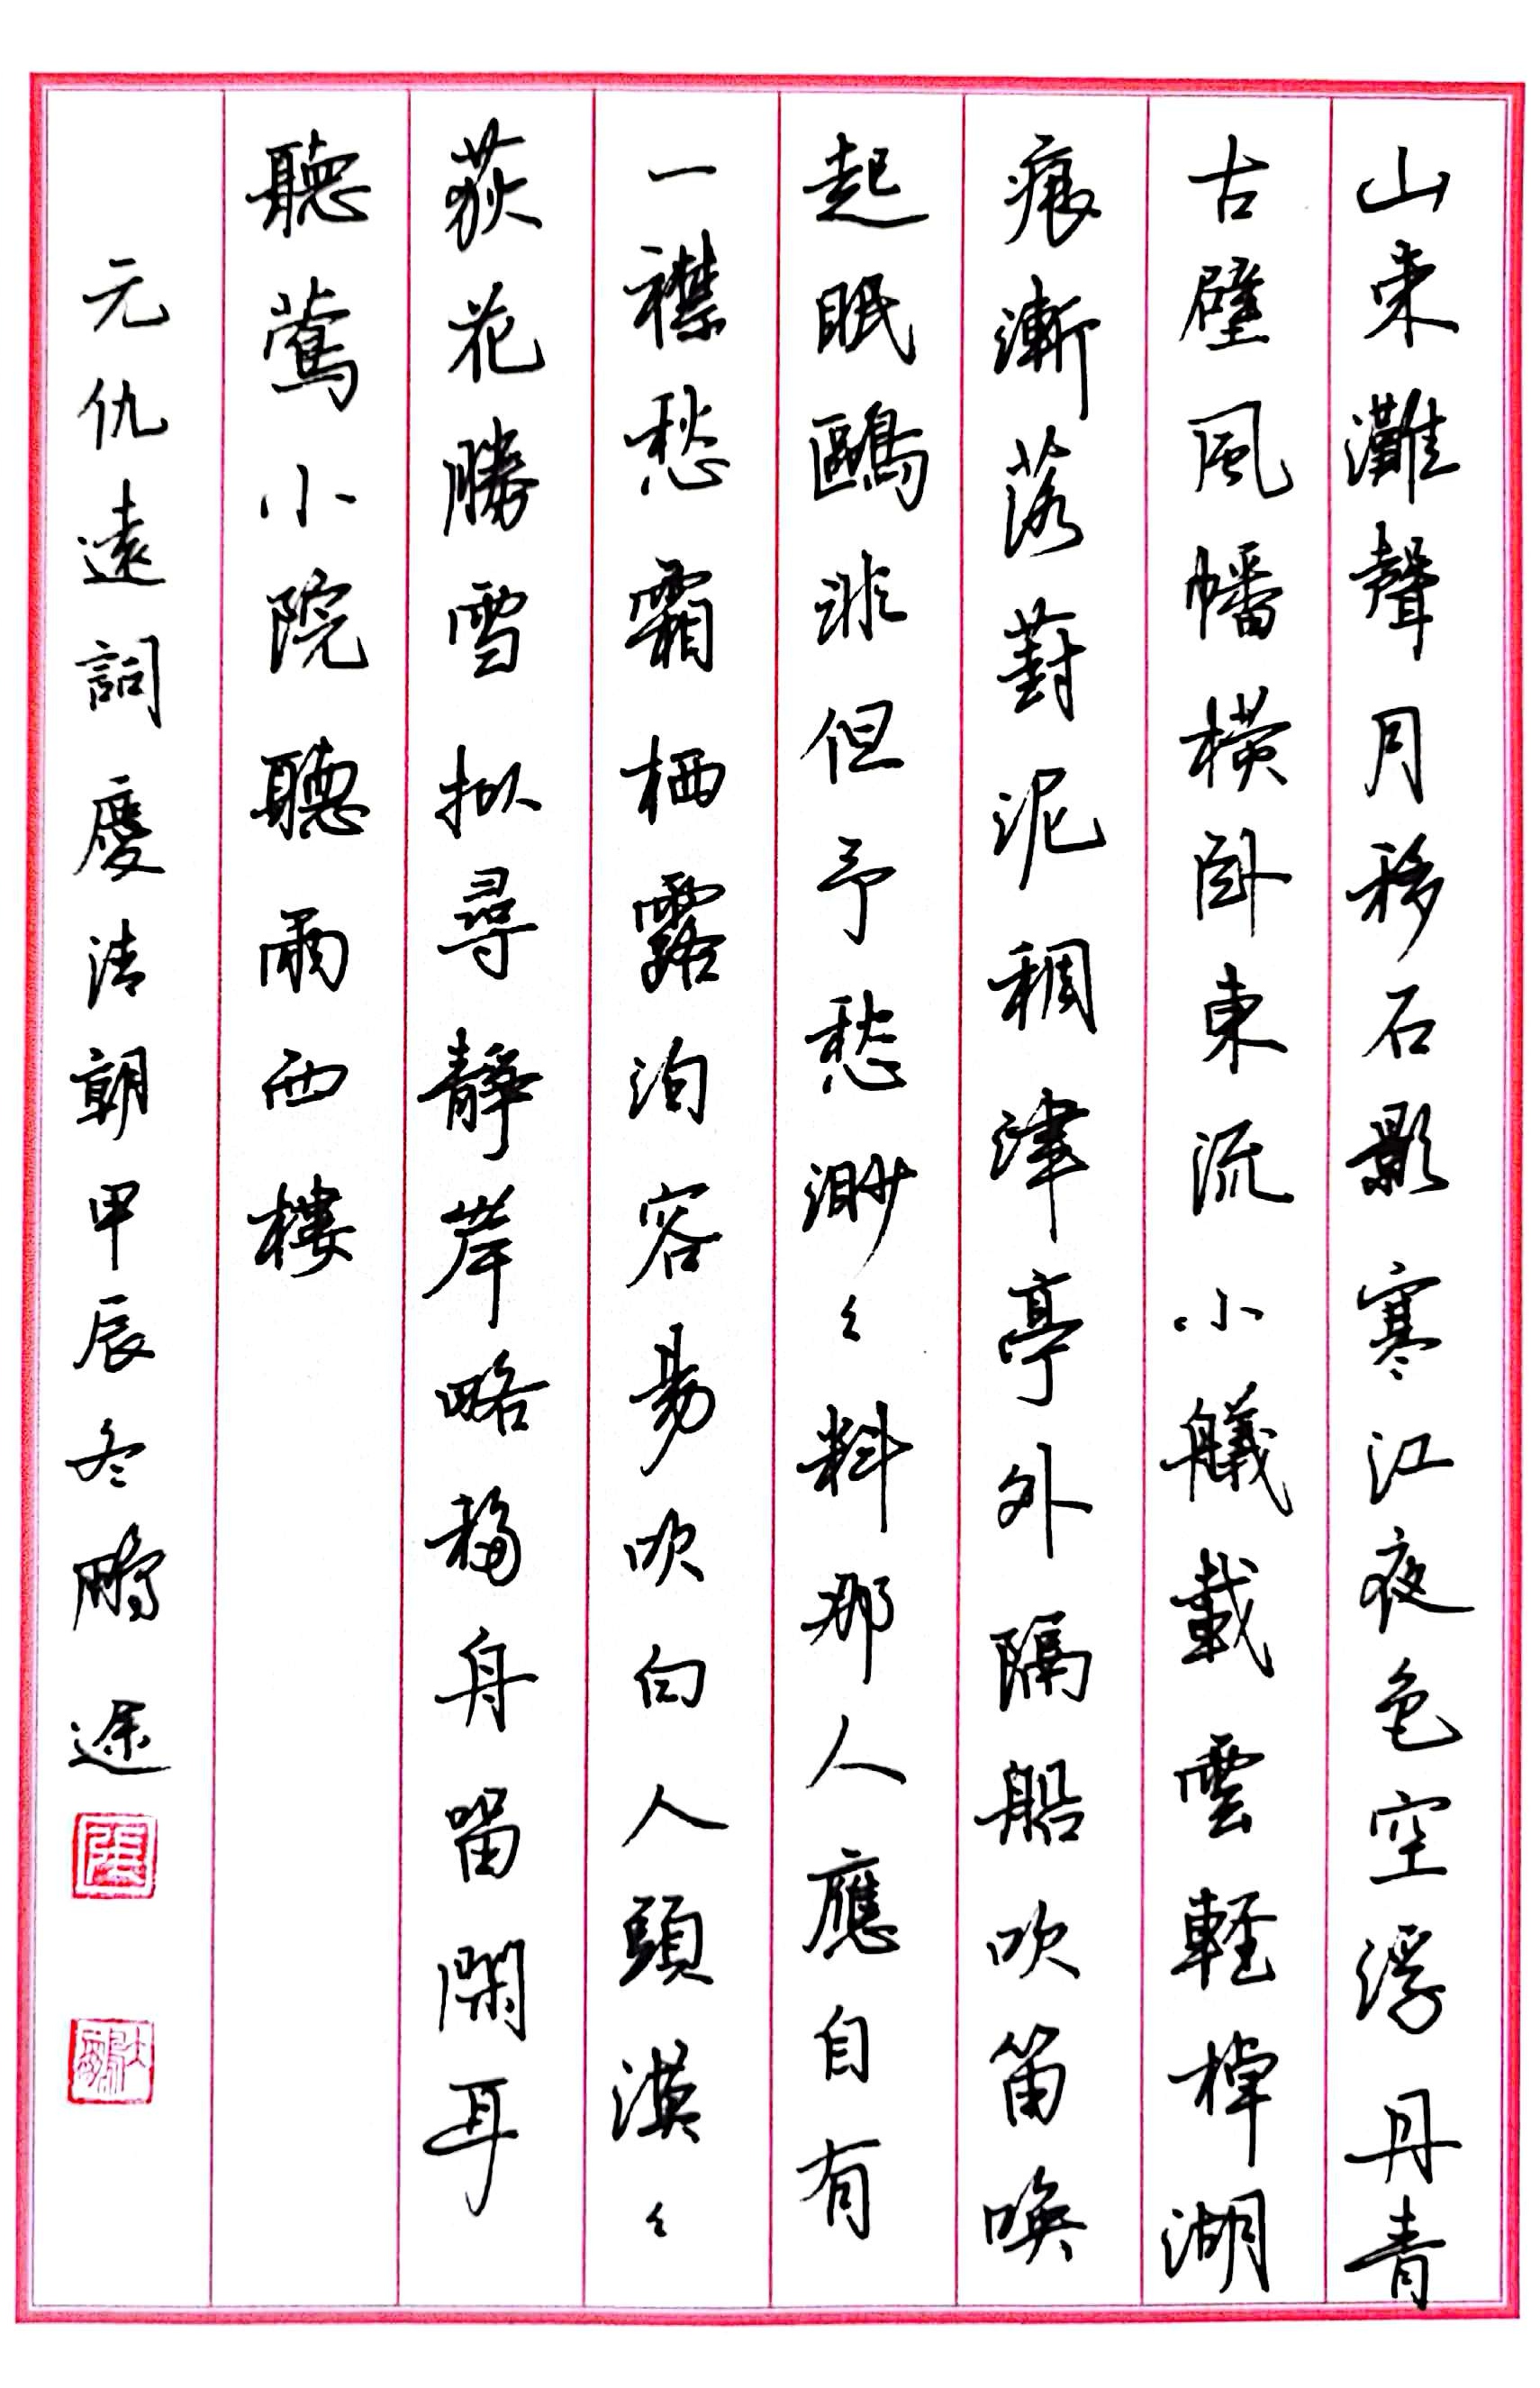 山束灘聲月移石影寒江夜色空浮丹青
古壁風幡横卧東流小艤載雲軽棹湖
痕漸落葑泥稠津亭外隔船吹笛喚
起眠鷗非但予愁渺々料那人應自有
一襟愁霜栖露泊容易吹白人頭漠々
荻花勝雪拟尋靜岸略移舟留閑耳
聽鶯小院聽雨西樓
元仇遠詞慶清朝甲辰冬鵬途